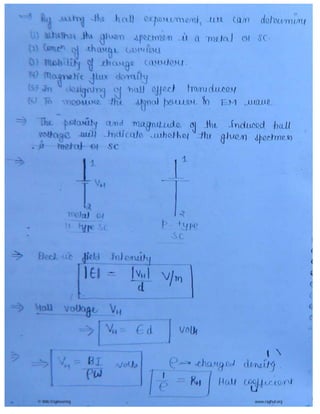 ⇒ By using the hall experiment, we can determine
(1) whether the given specimen is a metal or SC
(2) Concn of charge carriers
(3) Mobility of charge carriers.
(4) Magnetic flux density
(5) In designing of hall effect transducer
(6) To measure the signal power in EM wave
⇒ The polarity and magnitude of the induced hall
voltage will indicate whether the given specimen
is metal or SC
⇒ 1 1
VH
2 2
metal or p-type
n type SC SC
⇒ Electric field Intensity
|E| = |VH| / d V/m
⇒ Hall voltage VH
⇒ VH = Ed volts
⇒ VH = BI / ρW volts ρ → charged density.
1/ρ = RH Hall coefficient
www.raghul.org